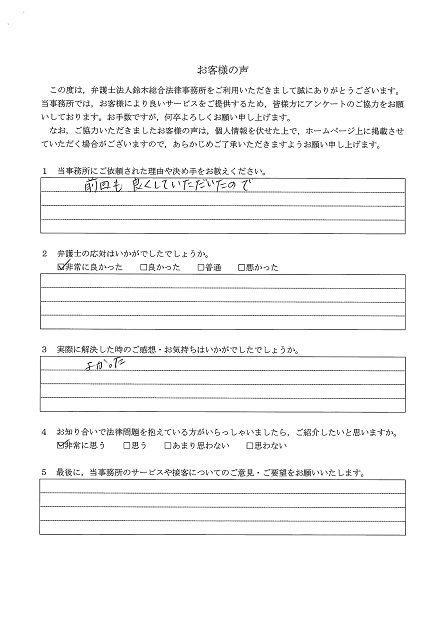 お客様の声
この度は，弁護士法人鈴木総合法律事務所をご利用いただきまして誠にありがとうございます。
当事務所では，お客様により良いサービスをご提供するため，皆様方にアンケートのご協力をお願
いしております。お手数ですが，何卒よろしくお願い申し上げます。
なお，ご協力いただきましたお客様の声は，個人情報を伏せた上で，ホームページ上に掲載させ
ていただく場合がございますので，あらかじめご了承いただきますようお願い申し上げます。
1 当事務所にご依頼された理由や決め手をお教えください。
前回も良くしていただいたので
2 弁護士の応対はいかがでしたでしょうか。
☑非常に良かった □良かった □普通 □悪かった
3 実際に解決した時のご感想・お気持ちはいかがでしたでしょうか。
よかった
4 お知り合いで法律問題を抱えている方がいらっしゃいましたら，ご紹介したいと思いますか。
☑非常に思う □思う □あまり思わない □思わない
5 最後に，当事務所のサービスや接客についてのご意見・ご要望をお願いいたします。